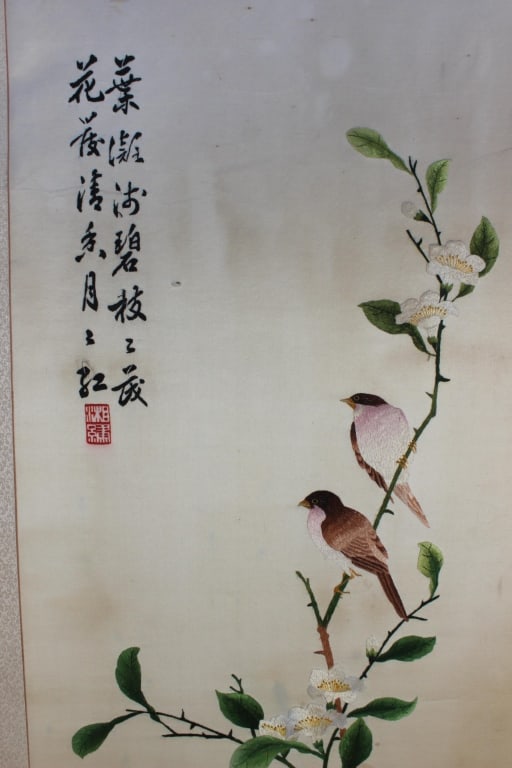 葉凝浅碧枝々茂
花發清香月々紅
湘繡